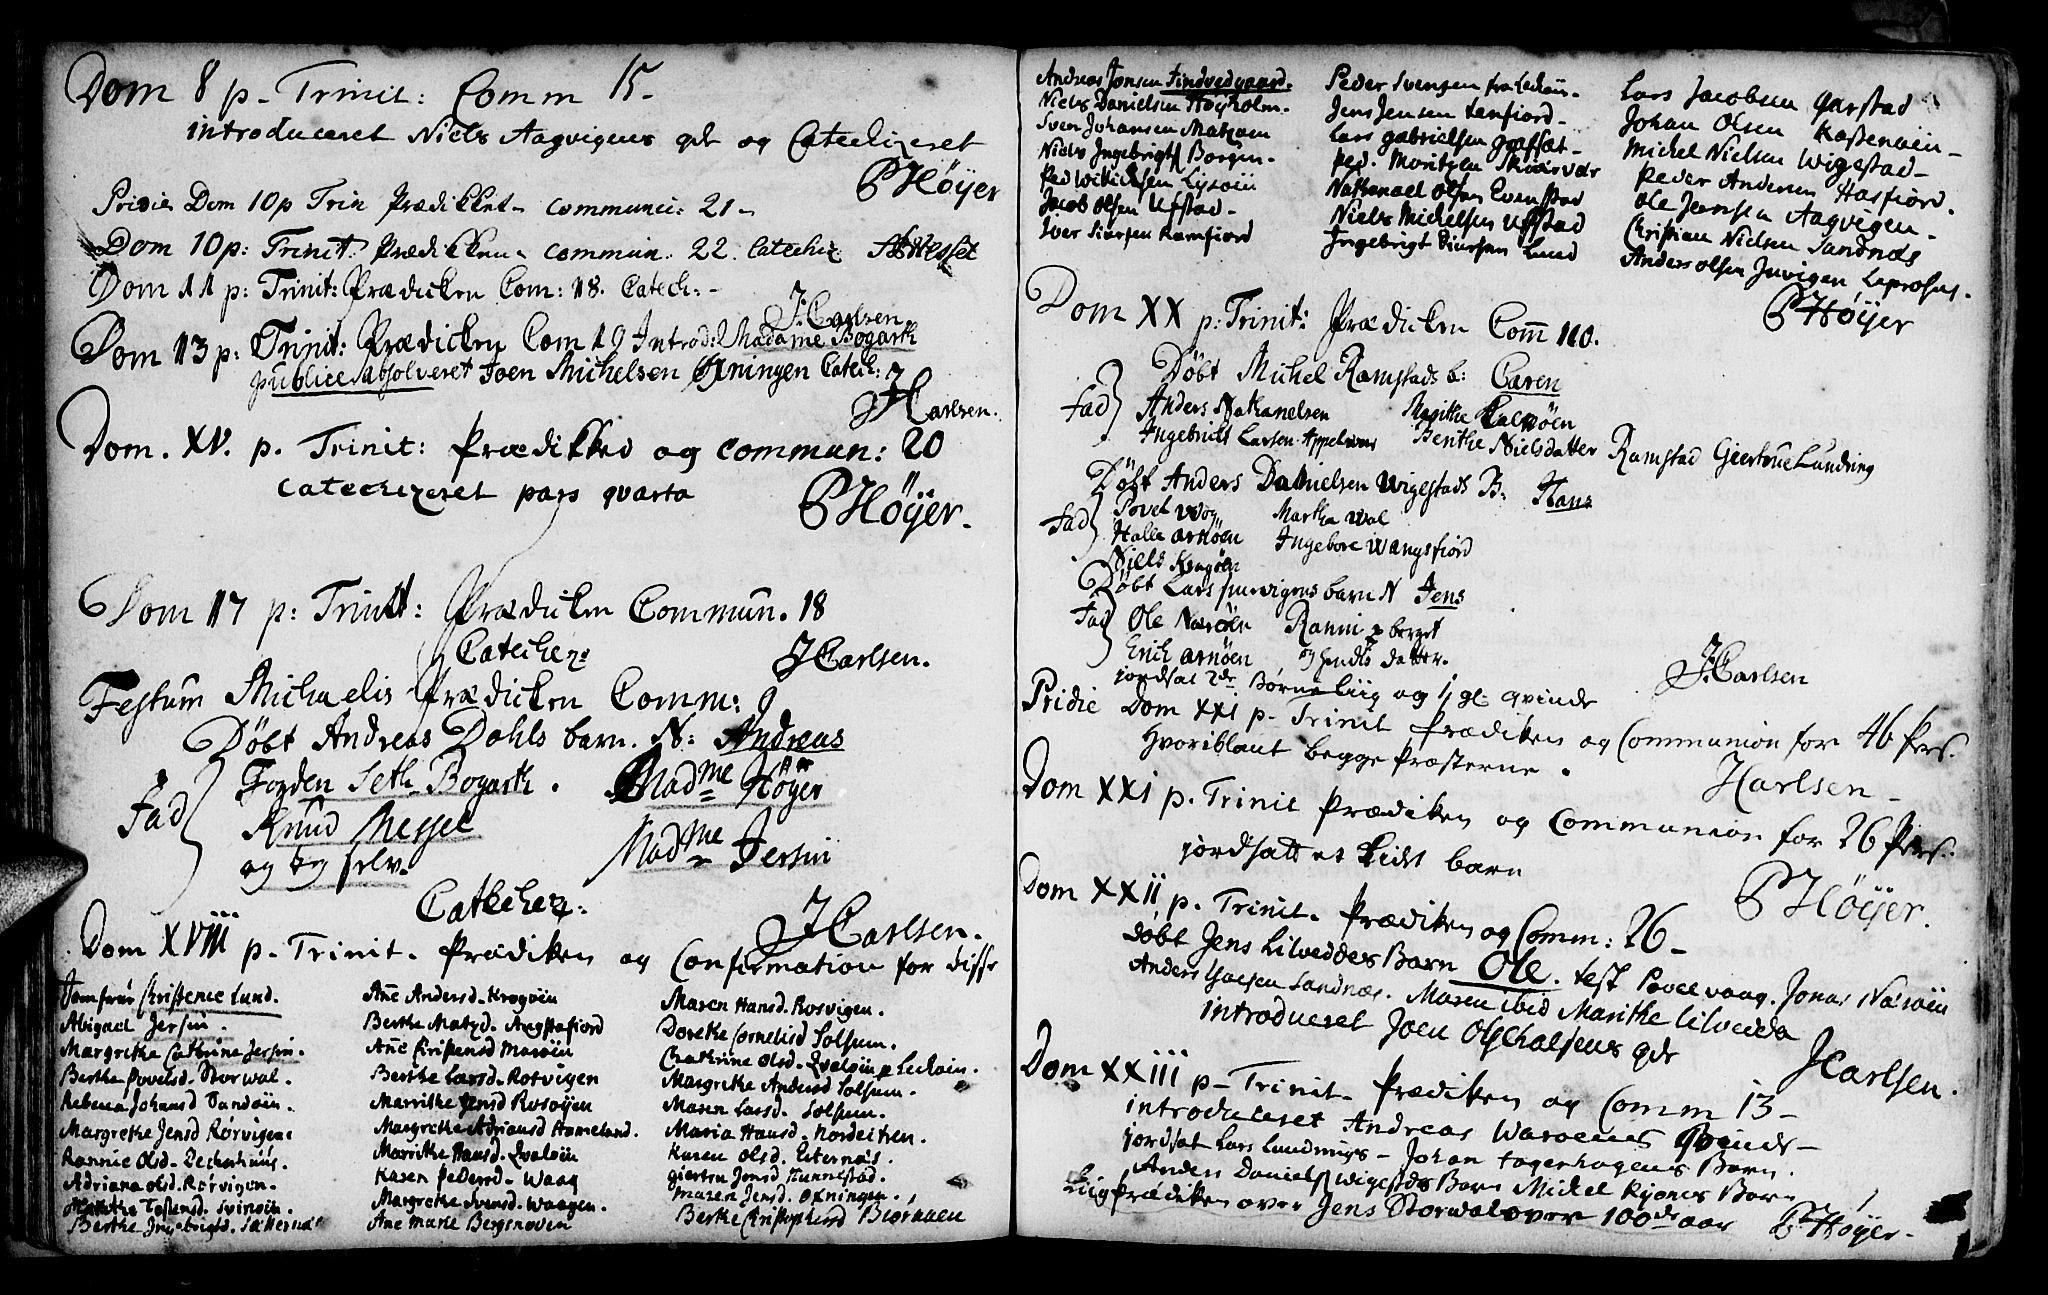 Dom 8 p. Trinit: Comm 15.
introduceret Niels Aagvigens qde og Catechizeret
PHöyer
Pridie Dom 10 p Trin Prædikket communic: 21
Dom 10 p: Trinit: Prædikken communi. 22. Catechiz
Dom 11 p: Trinit: Prædicken Com: 18. Catech:
J:Carlsen
Dom 13 p: Trinit: Prædicken Com 19 Introd: Madame Bogarth
publice absolveret Joen Michelsen Catech:
JCarlsen.
Dom. XV. p. Trinit: Prædikked og commun: 20
Catechizeret pars qvarta
PHöyer.
Dom 17 p: Trinit: Prædicken Commun. 18
Catechez:
JCarlsen.
Festum Michaelis Prædicken Comm: 9
Döbt Andreas Dahls barn. N: Andreas
Fad
Seth Bogarth. Madme Höyer
Knud Messel Madme Jersin
og ieg selv.
Catechez:
JCarlsen.
Dom XVIII p. Trinit. Prædiken og Confirmation for disse
Jomfrue Christence Lund.
Abigael Jersin.
Margrethe Cathrine Jersin.
Berthe Povelsd. Storwal.
Rebecca Johansd Sandöin.
Margrethe Jensd Rörvigen
Rannie Olsd.
Adriana Olsd. Rörvigen.
Tostensd. Svinöin.
Berthe Ingebrigtd.
Ane Andersd. Krogöin
Berthe Matzd. Angstafiord
Ane Cristensd Maröin
Berthe Larsd. Rotvigen
Marrithe Jensd Rosöyen
Margrethe Adriansd Hameland.
Marrithe Hansd. Qvalöin
Karen Pedersd. Waag
Margrethe Svensd. Waagen.
Ane Marie Bergsnoven
Maren Hansd. Rosvigen.
Dorethe Cornelisd Solsem.
Chatrine Olsd. Qvalöin p Lechöin.
Margrethe Andersd Solsem.
Maren Larsd. Solsem.
Maria Hansd. Nordeitren.
Karen Olsd. Eiternæs.
Giertru Jonsd Hunnestad.
Maren Jensd. Oxningen.
Berthe Christophersd Biornöen
Andreas Jonsen Findvedgaard.
Niels Danielsen Höyholm.
Sven Johansen Matzem
Niels Ingebrigts Borgen.
Ped Willichsen Lysöin
Jacob Olsen Ufstad.
Iver Siursen Ramfiord
Peder Svensen fra Lechöin.
Jens Jensen Lenfiord.
Lars Gabrielsen
Ped. Moritzen Skudrvær
Nathanael Olsen Evenstad
Niels Michelsen Ufstad
Ingebrigt Siursen Lund
Lars Jacobsen Garstad
Johan Olsen Kastenöin
Michel Nielsen Wigestad
Peder Andersen Hasfiord.
Ole Jensen Aagvigen.
Christian Nielsen Sandnæs
Anders Olsen Juvigen Leprosus.
PHöyer
Dom XX p: Trinit: Prædicken Com 110.
Döbt Michel Ramstads b: Caren
Fad
Anders Nathanelsen Marithe Kalvöen
Ingebricht Larsen Berithe Nielsdatter Ramstad Giertrue Lundring
Döbt Anders Danielsen Wigestads B: Hans
Fad
Povel Wog Martha Wal
Halle Arnöen Ingebore Wangsfiord
Niels Krogöen
Döbt Lars Juvigens barn N Jens
Fad
Ole Naröen Ranni p berget
Erich Arnöen og hendis datter.
jordsat 2de Börne Liig og 1 gl: qvinde
J:Carlsen
Pridie Dom XXI p. Trinit Prædiken og Communion for 46 Pers.
Hvoriblant begge Præsterne.
JCarlsen
Dom XXI p. Trinit Prædiken og Communion for 26 Pers.
jordsatt et Lidet barn
PHöyer.
Dom XXII p. Trinit. Prædiken og Comm: 26
döbt Jens Lilveddes Barn Ole. test Povel vaag. Jonas Naröin
Anders Joensen Sandnæs. Maren ibid Marithe Lilvedda
introduceret Joen Olss qde
JCarlsen.
Dom XXIII p. Trinit. Prædiken og Comm 13
introduceret Andreas Waroens qvinde
jordsat Lars Lundrings Johan Fagerhogens Barn.
Anders Daniels Wigestds Barn Michel Kyönes Barn
Liigprædiken over Jens Storwal over 100de aar
PHöyer.